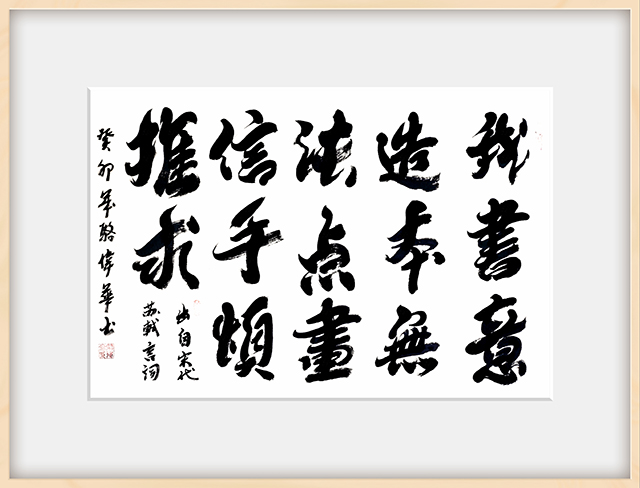 我書意
造本無
法点畫
信手煩
推求
出自宋代
苏軾言词
癸卯年駱偉華书